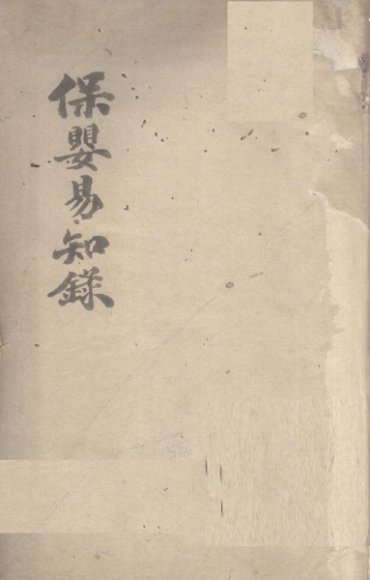 保嬰易知錄